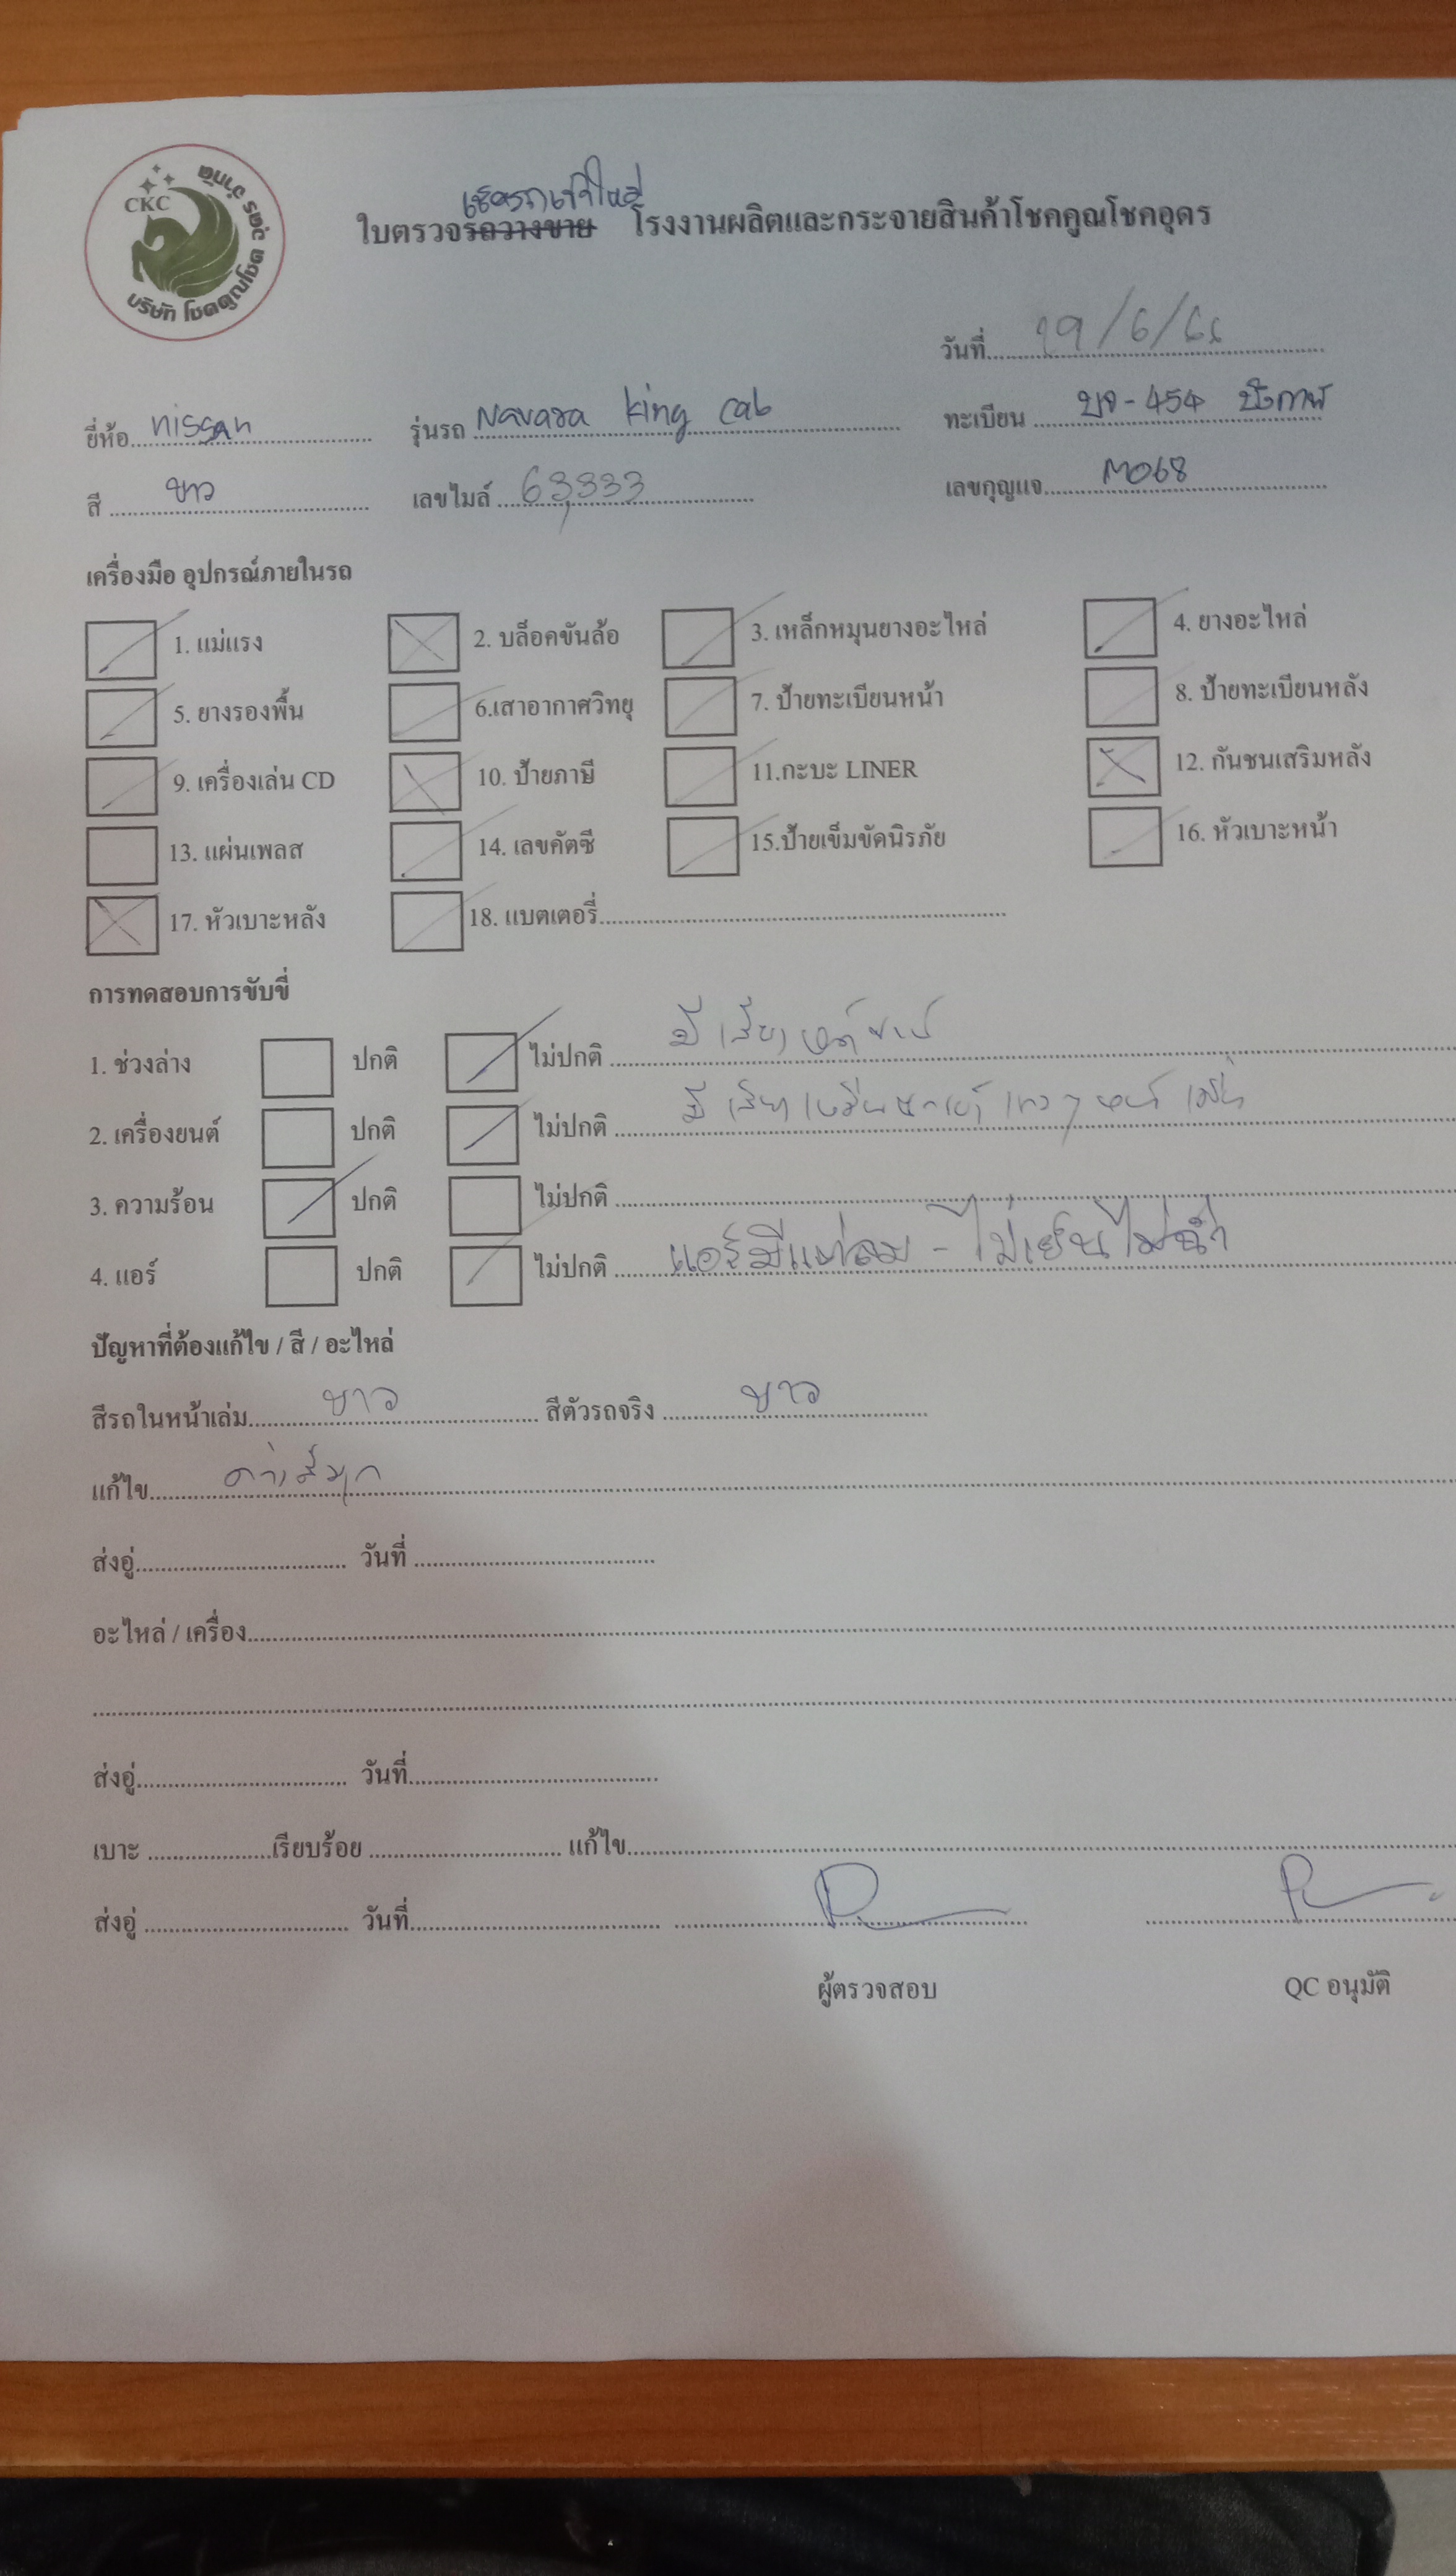 CKC
บริษัท โชคคูณโชค อุดร จำกัด
ใบตรวจรถวางขาย โรงงานผลิตและกระจายสินค้าโชคคูณโชคอุดร
วันที่ 29/6/66
ยี่ห้อ nissan รุ่นรถ Navara king cab ทะเบียน บจ-454 บึงกาฬ
สี ขาว เลขไมล์ 63,333 เลขกุญแจ M068
เครื่องมือ อุปกรณ์ภายในรถ
1. แม่แรง 2. บล็อคขันล้อ 3. เหล็กหมุนยางอะไหล่ 4. ยางอะไหล่
5. ยางรองพื้น 6.เสาอากาศวิทยุ 7. ป้ายทะเบียนหน้า 8. ป้ายทะเบียนหลัง
9. เครื่องเล่น CD 10. ป้ายภาษี 11.กะบะ LINER 12. กันชนเสริมหลัง
13. แผ่นเพลส 14. เลขคัตซี 15.ป้ายเข็มขัดนิรภัย 16. หัวเบาะหน้า
17. หัวเบาะหลัง 18. แบตเตอรี่
การทดสอบการขับขี่
1. ช่วงล่าง ปกติ ไม่ปกติ มีเสียง
2. เครื่องยนต์ ปกติ ไม่ปกติ มีเสียงเหมือน
3. ความร้อน ปกติ ไม่ปกติ
4. แอร์ ปกติ ไม่ปกติ แอร์มีแต่ลม - ไม่เย็นไม่ฉ่ำ
ปัญหาที่ต้องแก้ไข / สี / อะไหล่
สีรถในหน้าเล่ม ขาว สีตัวรถจริง ขาว
แก้ไข
ส่งอู่ วันที่
อะไหล่ / เครื่อง
ส่งอู่ วันที่
เบาะ เรียบร้อย แก้ไข
ส่งอู่ วันที่
ผู้ตรวจสอบ QC อนุมัติ